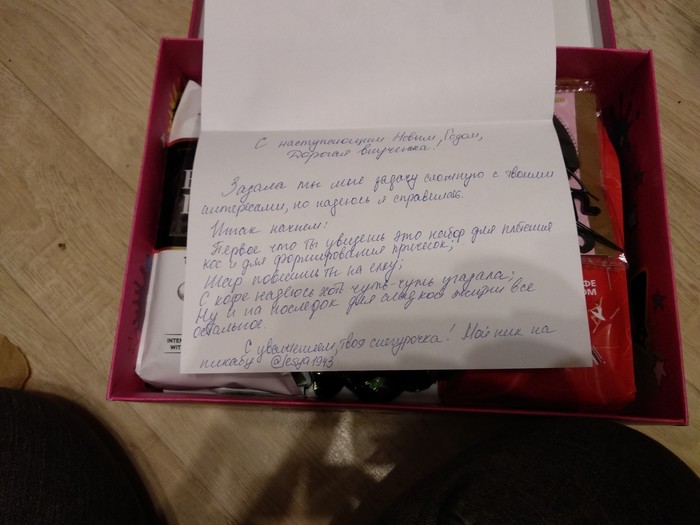 С наступающим Новым Годом,
Дорогая внученька!
Задала ты мне задачу сложную с твоими
интересами, но надеюсь я справилась.
Итак начнем:
Первое что ты увидешь это набор для плетения
кос и для формирования причесок;
Шар повесишь ты на елку;
С кофе надеюсь хоть чуть-чуть угадала;
Ну и на последок для сладкой жизни все
остальное.
С уважением, твоя снегурочка! Мой ник на
пикабу @lesya1943
INTEN
WIT